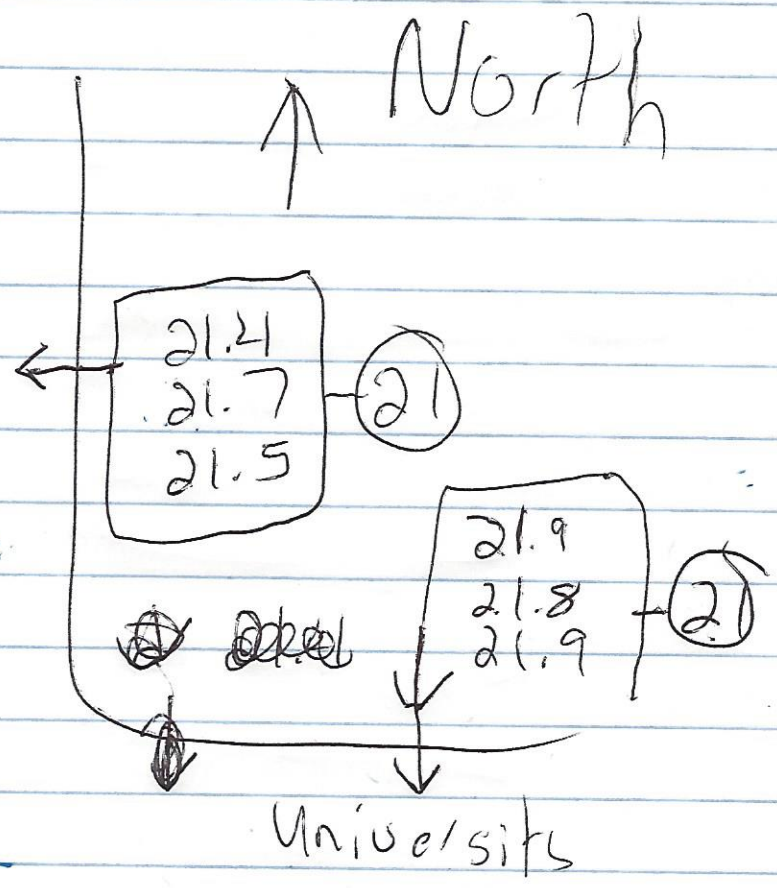 North
21.4
21.7
21.5
21
21.9
21.8
21.9
21
University